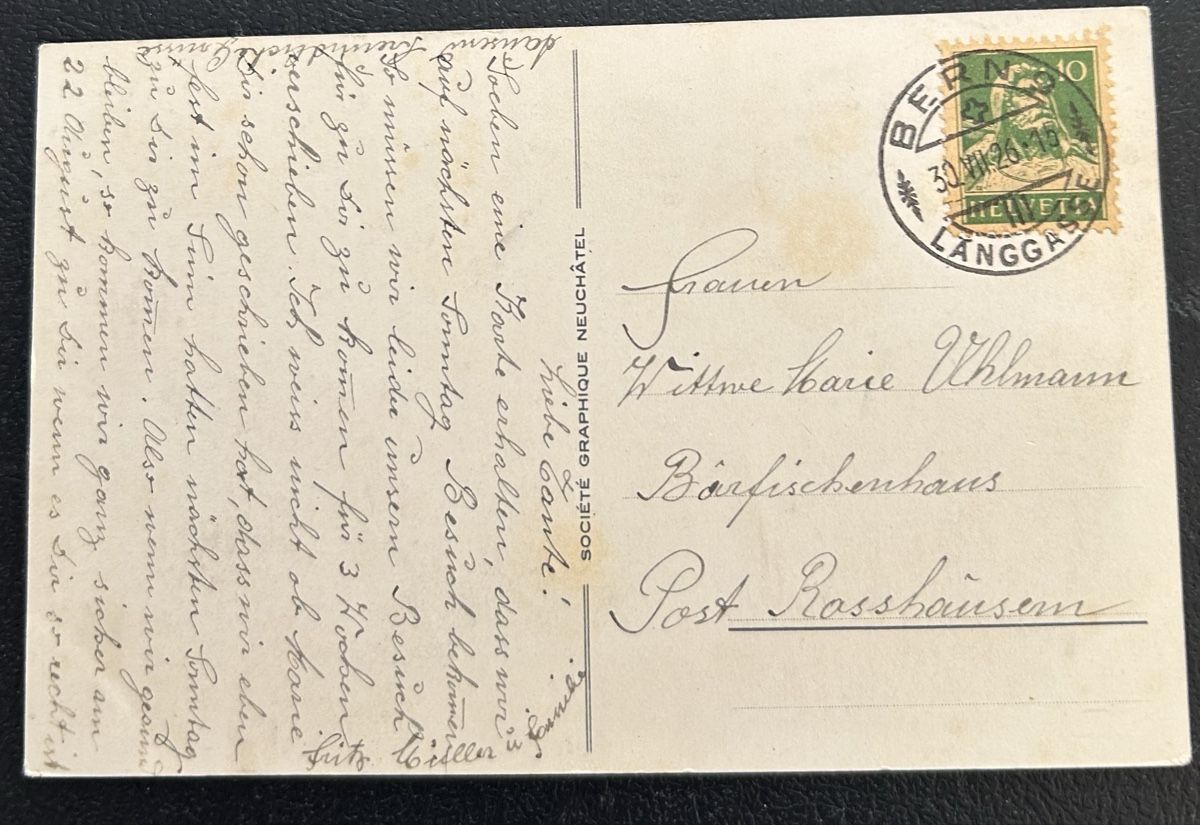 Liebe Tante!
Soeben eine Karte erhalten, dass wir
auf nächsten Sonntag Besuch bekom̅en
So müssen wir leider unsern Besuch
für zu Dir zu kom̅en für 3 Wochen
verschieben. Ich weiss nicht ob Marie
Dir schon geschrieben hat, dass wir eben
fest im Sinn hatten nächsten Sonntag
zu Dir zu kom̅en. Also wenn wir gesund
bleiben, so kommen wir ganz sicher am
22 August zu Dir wenn es Dir so recht ist
Fritz Müller
Familie
SOCIÉTÉ GRAPHIQUE NEUCHÂTEL
BERN 9
30.VII.26.15
III
LÄNGGASSE
10
HELVETIA
Frauen
Wittwe Marie Uhlmann
Bärfischenhaus
Post Rosshäusern